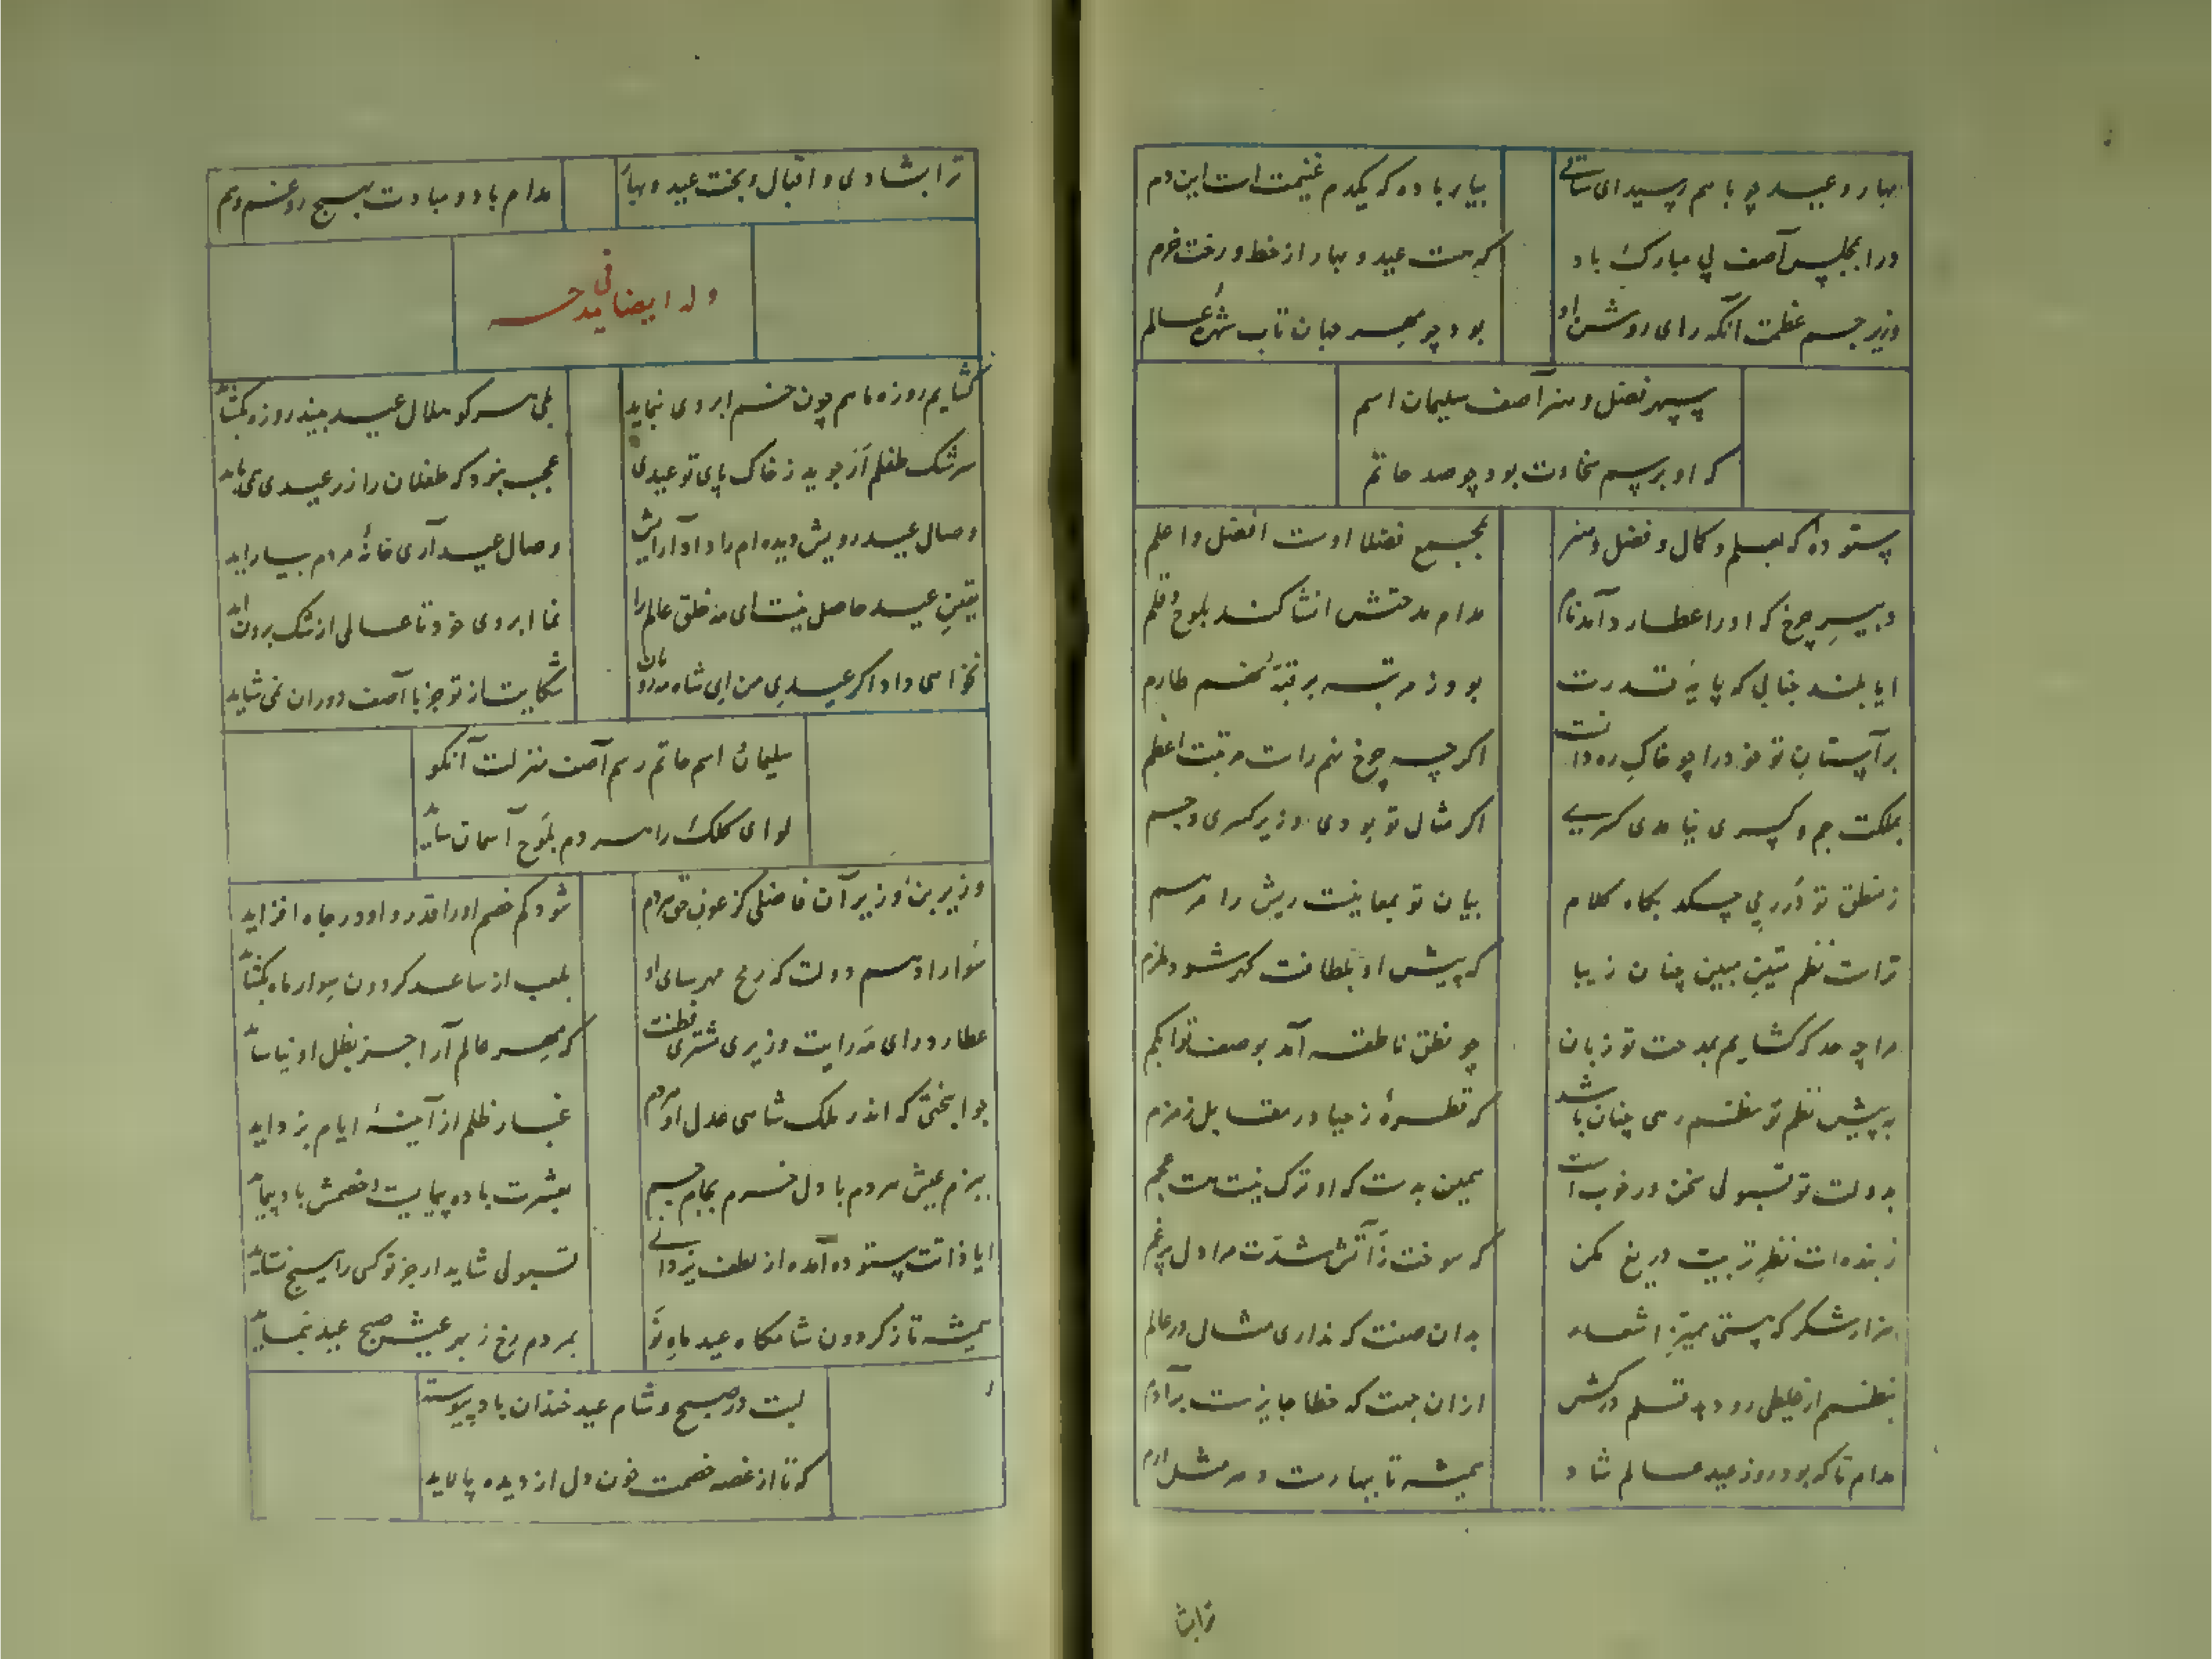 بهار و عید چو با هم رسید ای ساقی
بیار باده که یکدم غنیمت است این دم
ورا بمجلس آصف پی مبارک باد
که هست عید و بهار از خط و رخت خرم
وزیر جم عظمت آنکه رای روشن او
بود چو مهر جهان تاب شهرهٔ عالم
سپهر فضل و هنر آصف سلیمان اسم
که او برسم سخاوت بود چو صد حاتم
ستوده‌ای که بعلم و کمال و فضل و هنر
بجمیع فضلا اوست افضل و اعلم
دبیر چرخ که او را عطارد آمد نام
مدام مدحتش انشا کند بلوح و قلم
ایا بلند جنابی که پایهٔ قدرت
بود ز مرتبه بر قبهٔ نهم طارم
بر آستان تو خود را چو خاک ره دانست
اگر چه چرخ نهم راست مرتبت اعظم
بملکت جم و کسری نیامدی کسری
اگر مثال تو بودی وزیر کسری و جم
ز منطق تو درر می چکد بگاه کلام
بیان تو بمعانیست ریش را مرهم
تراست نظم متین مبین چنان زیبا
که پیش او بلطافت گهر شود ملزم
مرا چه حد که گشایم بمدحت تو زبان
چو نطق ناطقه آمد بوصف تو ابکم
به پیش نظم تو نظم رهی چنان باشد
که قطرهٔ ز حیا در مقابل زمزم
بدولت تو قبولی سخن ور خوب است
همین بدست که او ترک نیست هست عجم
ز بنده‌ات نظر تربیت دریغ مکن
که سوخت ز آتش شدت مرا دل پر غم
هزار شکر که هستی ممیز اشعار
بدان صفت که نداری مثال در عالم
بنظم ار غلطی رود قلم درکش
از ان جهت که خطا جایزست بر آدم
مدام تا که بود روز عید عالم شاد
همیشه تا ببهارست دهر مثل ارم
تراب
ترا بشادی و اقبال و بخت عید و بهار
مدام باد و مبادت بهیچ رو غم و هم
وله ایضا فی مدحه
گشایم روزه ماهم چون خم ابروی بنماید
بلی هر کو هلال عید بیند روزه بگشاید
سرشک طفلم ار جوید ز خاک پای تو عیدی
عجب نبود که طفلان را زر عیدی می‌باید
وصال عید رویش دیده‌ام را داد آرایش
وصال عید آری خانهٔ مردم بیاراید
یقین عید حاصل نیست ای مه خلق عالم را
نما ابروی خود تا عالمی از شک برون آید
نخواهی داد اگر عیدی من ای شاه مه رویان
شکایت از تو جز با آصف دوران نمی شاید
سلیمان اسم حاتم رسم آصف منزلت آنکو
لوای کلک را هر دم بلوح آسمان ساید
وزیر بن وزیر آن فاضلی کز عون حق هر دم
شود کم خصم او را قدر و او در جاه افزاید
سوار ادهم دولت که رمح مهر سای او
بلعب از ساعد گردون سوار ماه بگشاید
عطارد رای مه رایت وزیری مشتری فطنت
که مهر عالم آرا جز بظل او نیاساید
جوانبختی که اندر ملک شاهی عدل او هر دم
غبار ظلم از آینهٔ ایام بزداید
ببزم عیش هر دم با دل خرم بجام جم
بعشرت باده پیمایست و خصمش باد پیماید
ایا ذاتت ستوده آمده از لطف یزدانی
قبولی شاید ار جز تو کسی را هیچ نستاید
همیشه تا ز گردون شامگاه عید ماه نو
بمردم رخ ز بهر عیش صبح عید بنماید
لبت در صبح و شام عید خندان باد پیوسته
که تا از غصه خصمت خون دل از دیده پالاید